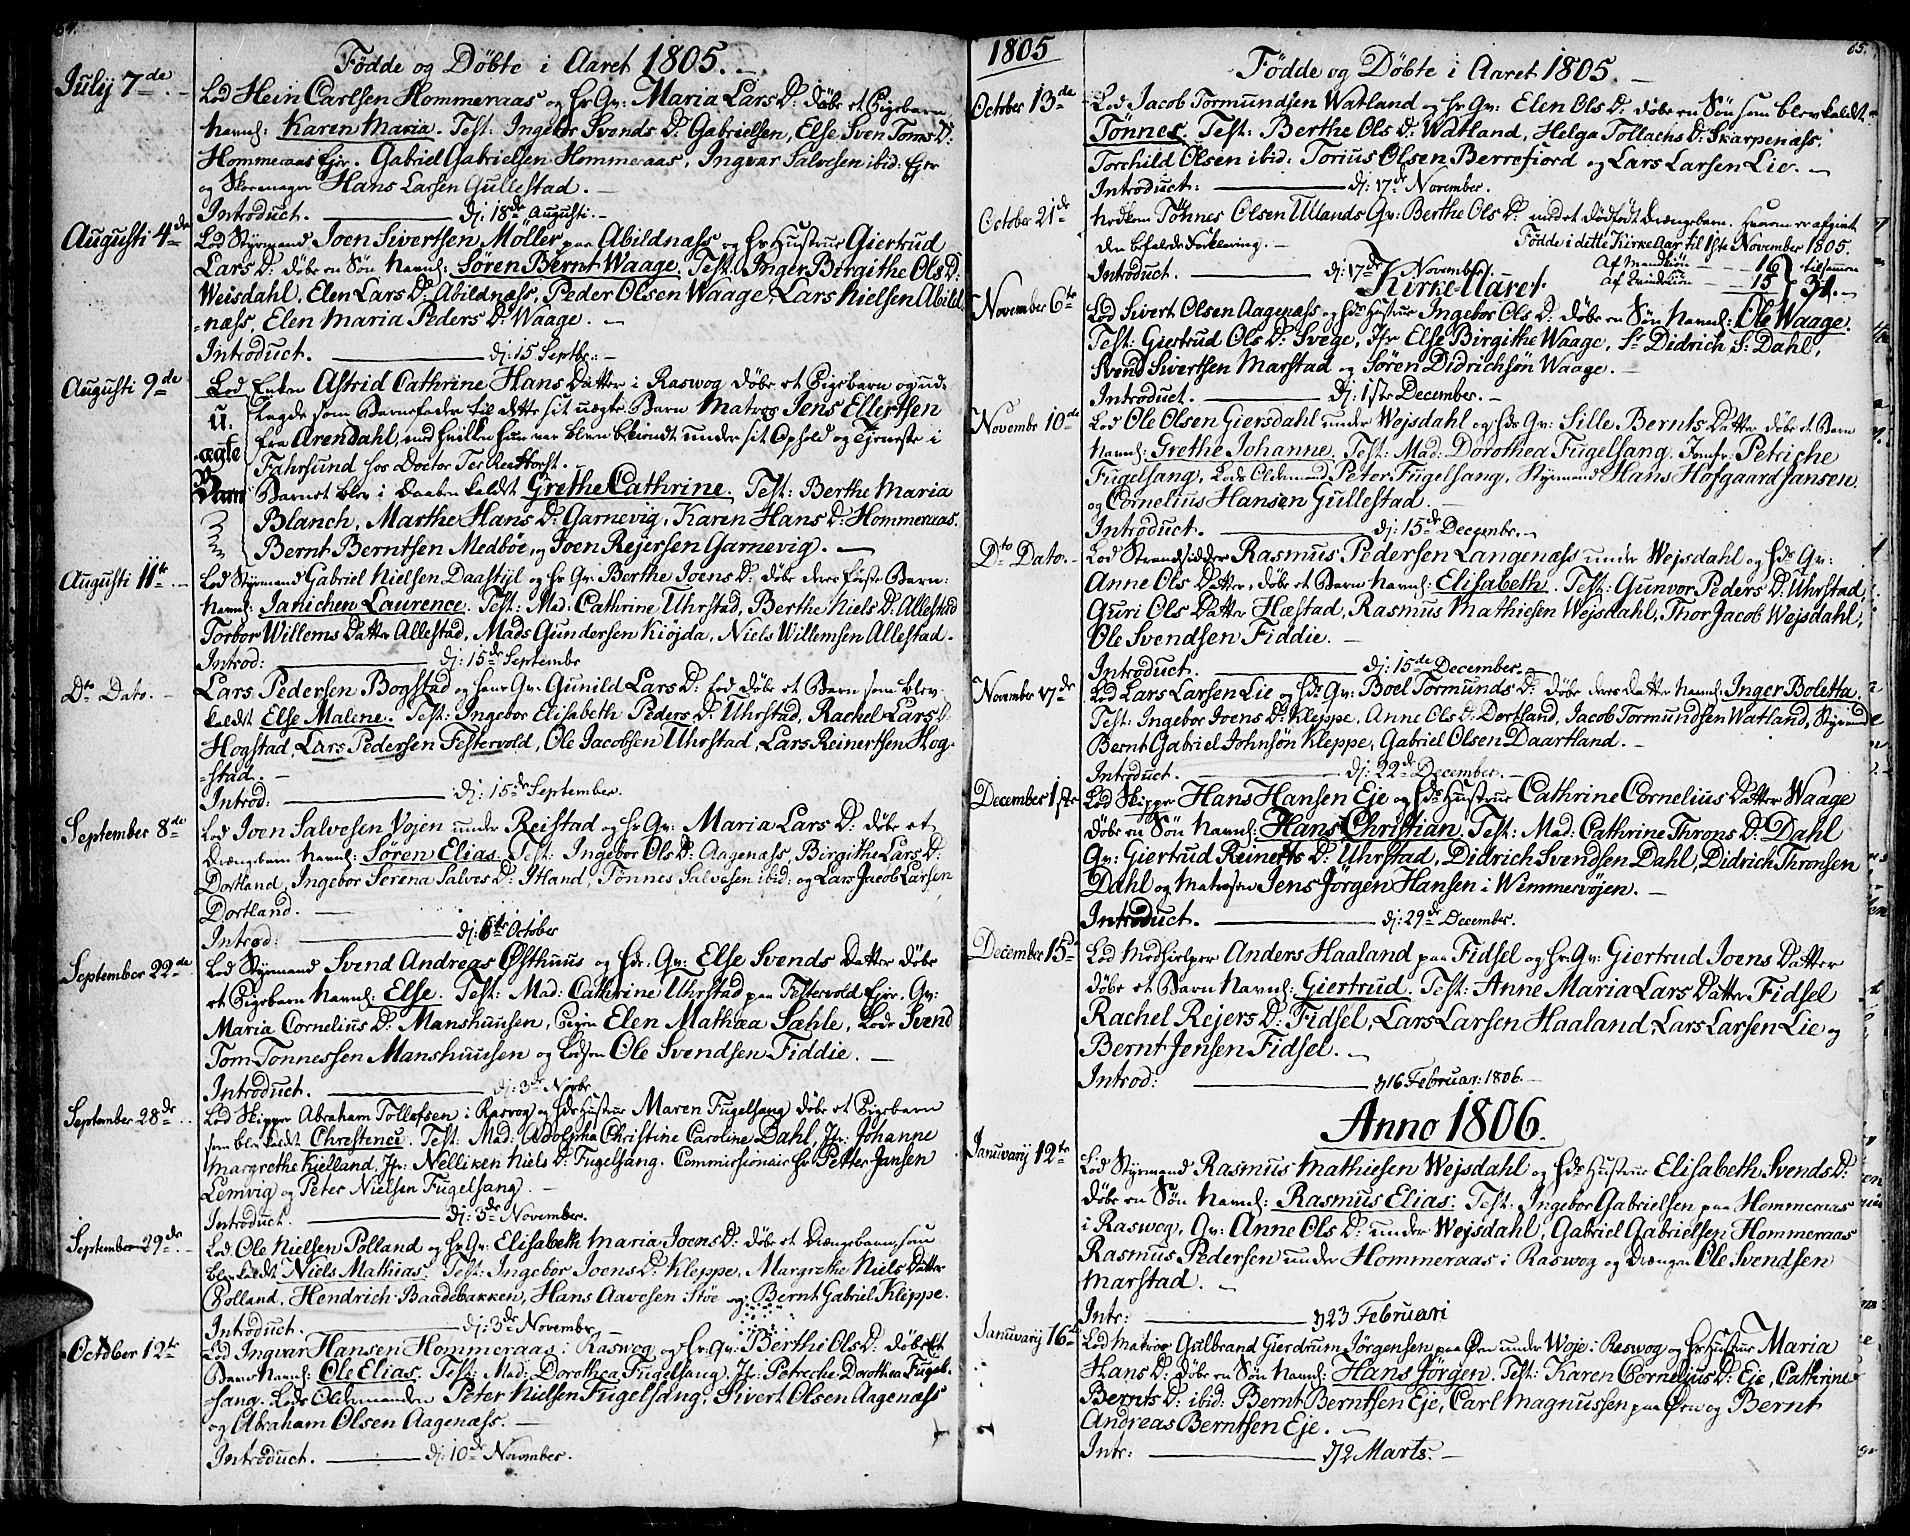 64.
Fødde og Døbte i Aaret 1805.
July 7de Lod Hein Carlsen Hommeraas og Hs Qv: Maria Lars D: døbe et Pigebarn
Navnl: Karen Maria. Test: Ingebor Svends D: Gabrielsen, Else Sven Toms D:
Hommeraas Eje. Gabriel Gabrielsen Hommeraas, Ingvar Salvesen ibid: Eje
og Skoemager Hans Larsen Gullestad.
Introduct. d: 18de Augusti.
Augusti 4de Lod Styrmand Joen Sivertsen Möller paa Abildnæss og Hs Hustrue Giertrud
Lars D: døbe en Søn Navnl: Søren Bernt Waage. Test: Inger Birgithe Ols D:
Weisdahl, Elen Lars D: Abildnæss, Peder Olsen Waage, Lars Nielsen Abild
=næss, Elen Maria Peders D: Waage.
Introduct. d: 15 Septbr:
Augusti 9de Lod Enken Astrid Cathrine Hans Datter i Raswog døbe et Pigebarn og ud
u. lagde som Barnefader til dette sit uægte Barn Matros Jens Ellertsen
fra Arendahl, med hvilken hun var bleven bekiendt under sit Ophold og Tjeneste i
ægte Fahrsund hos Doctor
Barn Barnet blev i Daaben kaldt Grethe Cathrine. Test: Berthe Maria
Blanch, Marthe Hans D: Garnevig, Karen Hans D: Hommeraas.
Bernt Berntsen Medbøe, og Joen Rejersen Garnevig.
Augusti 11te Lod Styrmand Gabriel Nielsen Daastyl og Hs Qv: Berthe Joens D: døbe deres første Barn:
Navnl: Janichen Laurence. Test: Mad: Cathrine Uhrstad, Berthe Niels D: Allestad
Torbor Willems Datter Allestad, Mads Gundersen Kiøjda, Niels Willemsen Allestad.
Introd: d: 15de Septembr
Dto Dato. Lars Pedersen Bogstad og hans Qv: Gunild Lars D: lod døbe et Barn som blev
kaldt Else Malene. Test: Ingebor Elisabeth Peders D: Uhrstad, Rachel Lars D:
Hogstad, Lars Pedersen Festervold, Ole Jacobsen Uhrstad, Lars Reinertsen Hog-
=stad.
Introd: d: 15de September.
September 8de Lod Joen Salvesen Vøjen under Reistad og Hs Qv: Maria Lars D: døbe et
Drængebarn Navnl: Søren Elias. Test: Ingebor Ols D: Aagenæss, Birgithe Lars D:
Dortland, Ingebor Serena Salves D: Itland, Tönnes Salvesen ibid: og Lars Jacob Larsen
Dortland.
Introd: d: 6te October
September 22de Lod Styrmand Svend Andreas Østhuus og Hds. Qv: Else Svends Datter døbe
et Pigebarn Navnl: Else. Test: Mad: Cathrine Uhrstad paa Festervold Eje. Qv:
Maria Cornelius D: Manshuusen, Pigen Elen Mathæa Sahle, Lods Svend
Tom Tonnessen Manshuusen og Lodsen Ole Svendsen Fiddie.
Introduct. d: 3de Novbr.
September 28de Lod Skipper Abraham Tollefsen i Raswog og Hds Hustrue Maren Fugelsang døbe et Pigebarn
som blev kaldt Chrestence. Test: Mad: Adolpha Christine Caroline Dahl, Jfr: Johanne
Margrethe Kielland, Jfr: Nelliken Niels D: Fugelsang. Commissionair Hr Petter Jansen
Lemvig og Peter Nielsen Fugelsang.
Introduct. d: 3de November.
September 29de Lod Ole Nielsen Polland og Hs Qv: Elisabeth Maria Joens D: døbe et Drængebarn som
blev kaldt Niels Mathias. Test: Ingebor Joens D: Kleppe, Margrethe Niels Datter
Polland, Hendrich Baadebakken, Hans Aavesen Støe og Bernt Gabriel Kleppe.
Introduct. d: 3de November
October 12te Lod Ingvar Hansen Hommeraas i Raswog og Hs: Qv: Berthe Ols D: døbe et
Barn Navnl: Ole Elias. Test: Mad: Dorothea Fugelsang, Jfr: Petreche Dorothea Fugel-
=sang. Lods Oldermanden Peter Nielsen Fugelsang, Sivert Olsen Aagenæss
og Abraham Olsen Aagenæss.
Introduct. d: 10de November.
65.
1805 Fødde og Døbte i Aaret 1805.
October 13de Lod Jacob Tormundsen Watland og Hs Qv: Elen Ols D: døbe en Søn som blev kaldt
Tönnes. Test: Berthe Ols D: Watland, Helga Tollachs D: Skarpenæss.
Torchild Olsen ibid: Torius Olsen Berrefiord og Lars Larsen Lie.
Introduct: d: 17de November.
October 21de Nedkom Tönnes Olsen Ullands Qv: Berthe Ols D: med et dødfødt Drængebarn. Hvorom er afgivet
den befalede Forklaring. Fødde i dette Kirke Aar til 1ste November 1805.
Introduct. d: 17de November. Af Mandkiøn 16 tilsammen
Kirke-Aaret. Af Qvindekiøn 15 31.
November 6te Lod Sivert Olsen Aagenæss og Hds Hustrue Ingebor Ols D: døbe en Søn Navnl: Ole Waage.
Test: Giertrud Ols D: Svege, Jfr Else Birgithe Waage, Sr Didrich S: Dahl,
Svend Sivertsen Marstad og Søren Didrichsön Waage.
Introduct. d: 1ste December.
Novembr 10de Lod Ole Olsen Giersdahl under Wejsdahl og Hds Qv: Sille Bernts Datter døbe et Barn
Navnl: Grethe Johanne. Test: Mad: Dorothea Fugelsang. Jomfr: Petriche
Fugelsang, Lods Oldermand Peter Fugelsang, Styrmand Hans Hofgaard Jansen
og Cornelius Hansen Gullestad.
Introduct. d: 15de Decembr.
Dto Dato. Lod Strandsidder Rasmus Pedersen Langenæss under Wejsdahl og Hds Qv:
Anne Ols Datter, døbe et Barn Navnl: Elisabeth. Test: Gunvor Peders D: Uhrstad,
Guri Ols Datter Hæstad, Rasmus Mathiesen Wejsdahl, Thor Jacob Wejsdahl,
Ole Svendsen Fiddie.
Introduct. d: 15de December.
November 17de Lod Lars Larsen Lie og Hds Qv: Boel Tormunds D: døbe deres Datter Navnl: Inger Boletta.
Test: Ingebor Joens D: Kleppe, Anne Ols D: Dortland, Jacob Tormundsen Watland, Styrmand
Bernt Gabriel Johnsön Kleppe, Gabriel Olsen Daartland.
Introduct. d: 22de December.
December 1ste Lod Skipper Hans Hansen Eje og Hds Hustrue Cathrine Cornelius Datter Waage
døbe en Søn Navnl: Hans Christian. Test: Mad: Cathrine Throns D: Dahl
Qv: Giertrud Reinerts D: Uhrstad, Didrich Svendsen Dahl, Didrich Thronsen
Dahl og Matrosen Jens Jörgen Hansen i Wimmervöjen.
Introduct. d: 29de December.
December 15de Lod Medhielper Anders Haaland paa Fidsel og Hs Qv: Giertrud Joens Datter
døbe et Barn Navnl: Giertrud. Test: Anne Maria Lars Datter Fidsel
Rachel Rejers D: Fidsel, Lars Larsen Haaland Lars Larsen Lie og
Bernt Jensen Fidsel.
Introd: d 16 Februar: 1806.
Anno 1806.
Januvarij 12te Lod Styrmand Rasmus Mathiesen Wejsdahl og Hds Hustrue Elisabeth Svends D:
døbe en Søn Navnl: Rasmus Elias. Test: Ingebor Gabrielsen paa Hommeraas
i Raswog, Qv: Anne Ols D: under Wejsdahl, Gabriel Gabrielsen Hommeraas
Rasmus Pedersen under Hommeraas i Raswog og Drængen Ole Svendsen
Marstad.
Intr: d 23 Februari
Januvarij 16de Lod Matros Gulbrand Gierdrum Jørgensen paa Øen under Woje i Raswog og Hs Hustrue Maria
Hans D: døbe en Søn Navnl: Hans Jörgen. Test: Karen Cornelius D: Eje, Cathrine
Bernts D: ibid: Bernt Berntsen Eje, Carl Magnussen paa Øen og Bernt
Andreas Berntsen Eje.
Intr: d 2 Marts.